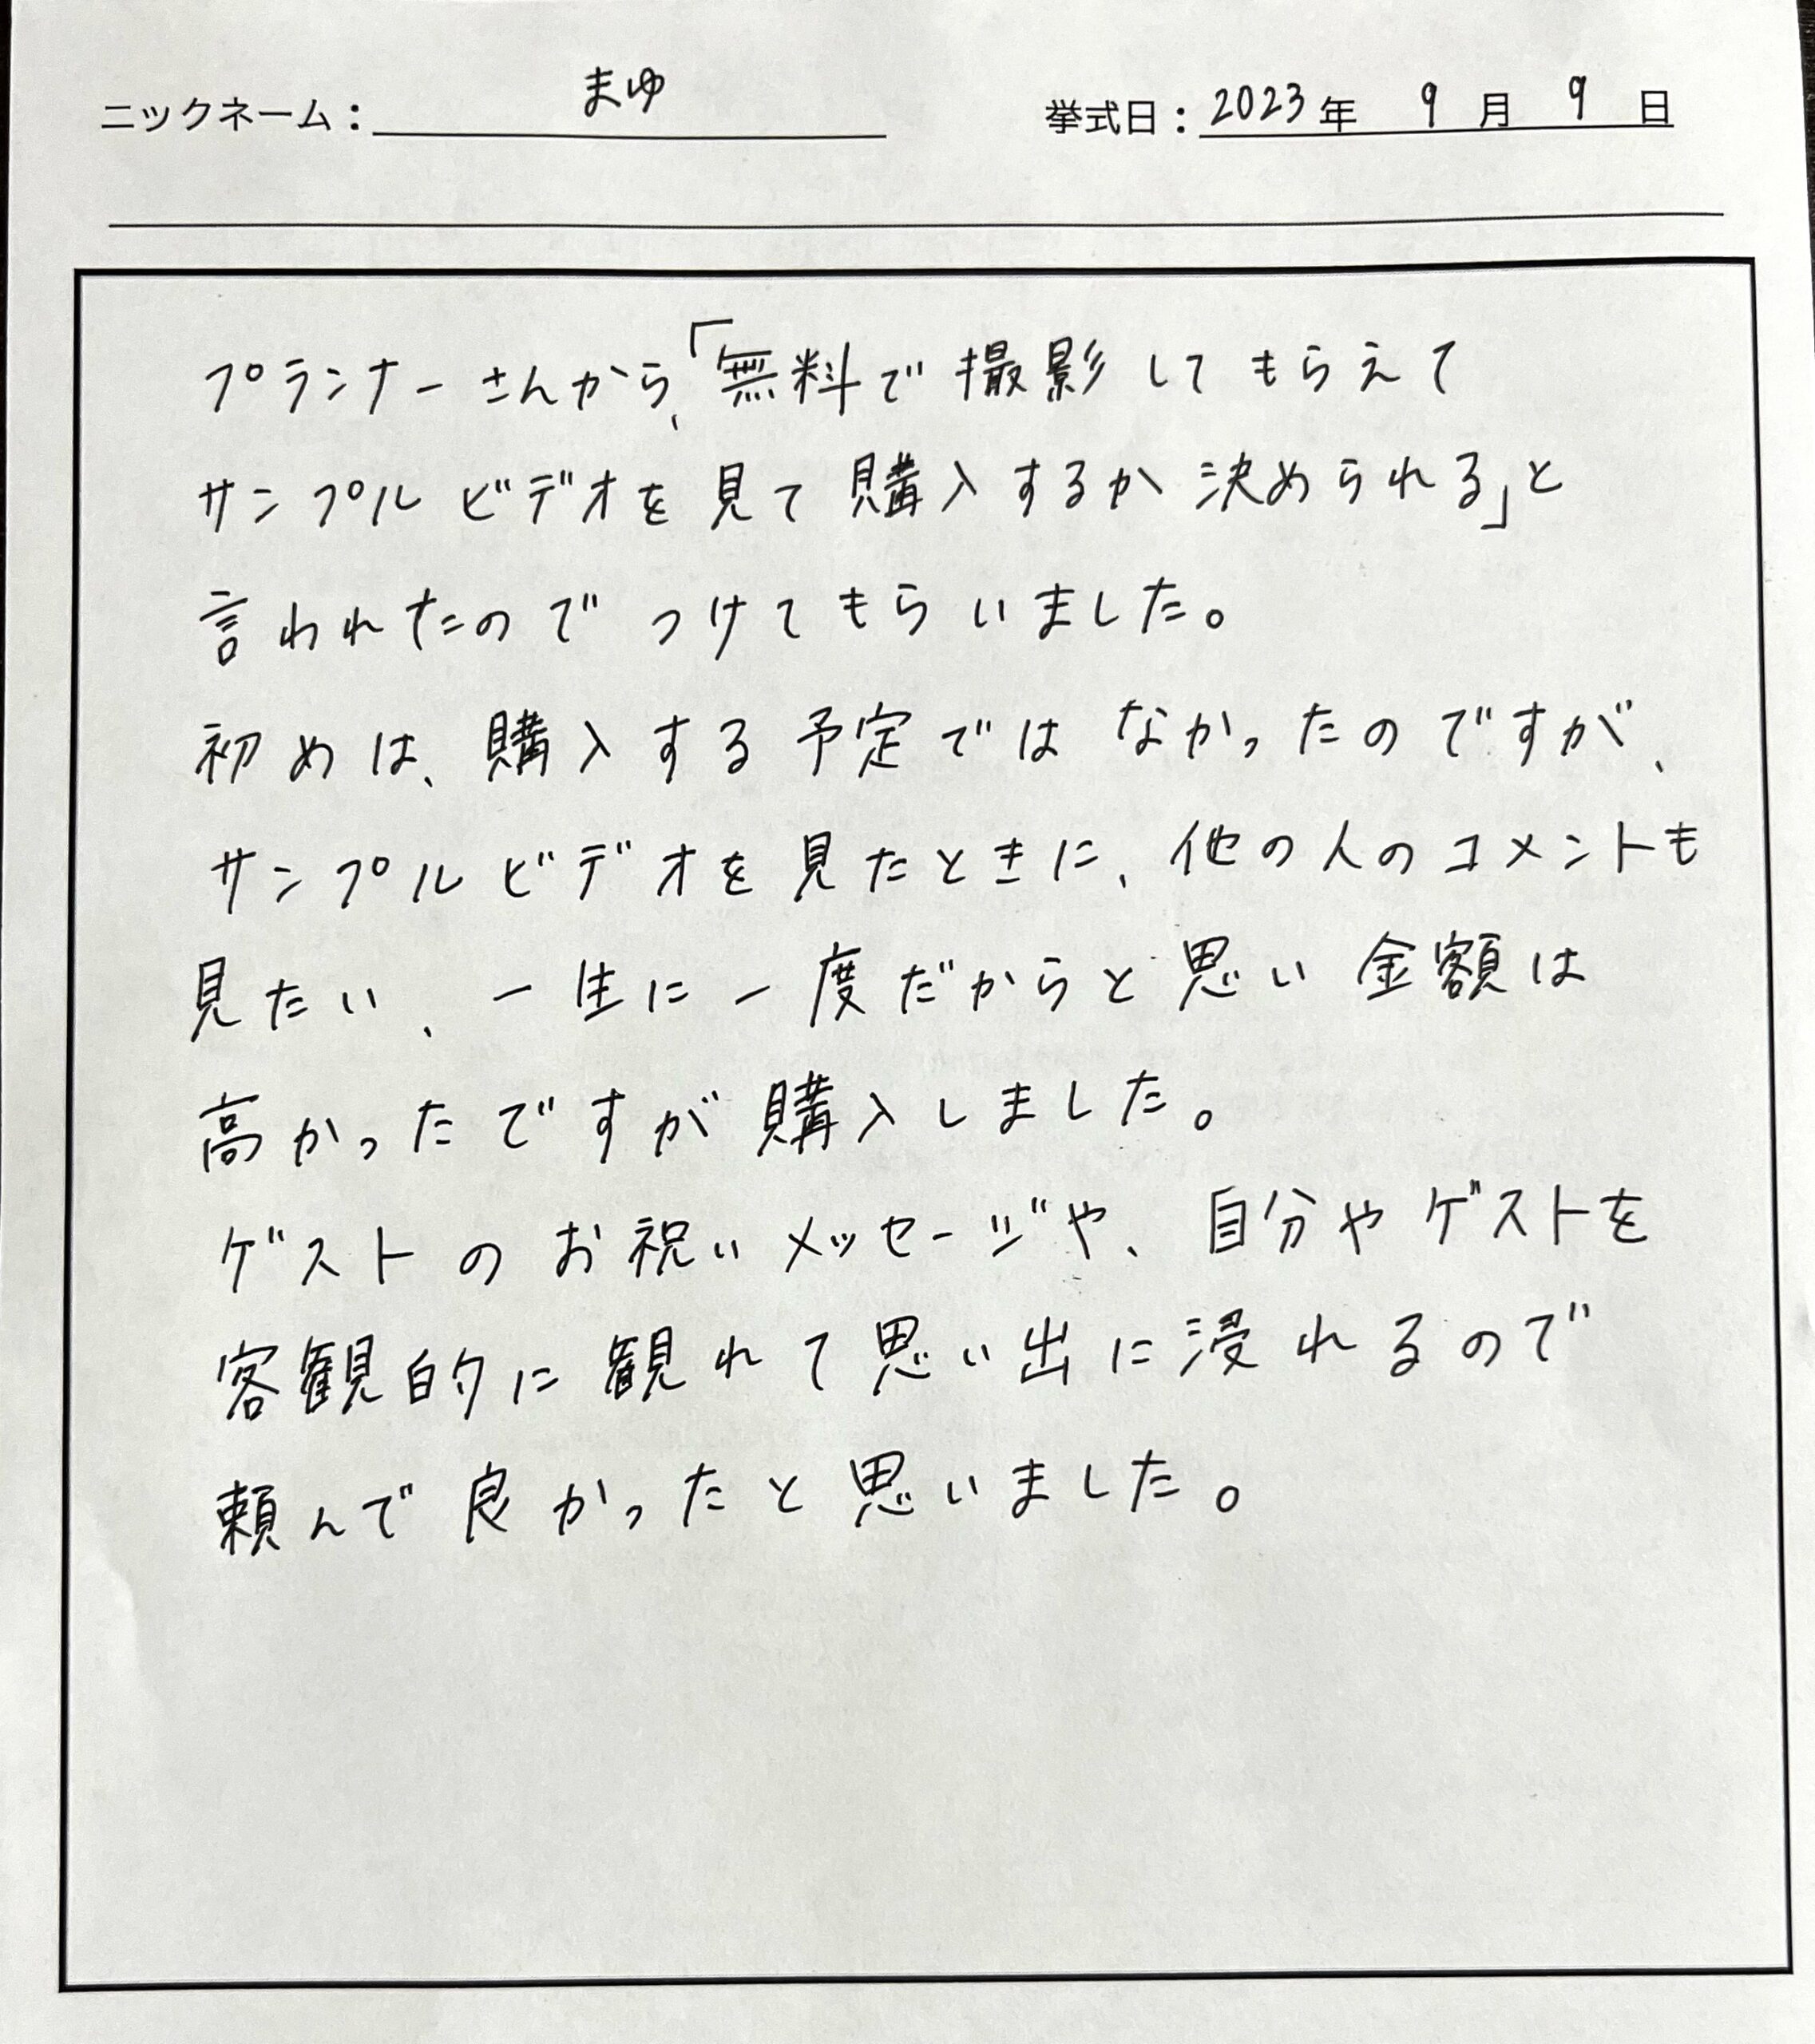 ニックネーム：まゆ 挙式日：2023年 9月 9日
プランナーさんから、「無料で撮影してもらえて
サンプルビデオを見て購入するか決められる」と
言われたのでつけてもらいました。
初めは、購入する予定ではなかったのですが、
サンプルビデオを見たときに、他の人のコメントも
見たい、一生に一度だからと思い金額は
高かったですが購入しました。
ゲストのお祝いメッセージや、自分やゲストを
客観的に観れて思い出に浸れるので
頼んで良かったと思いました。